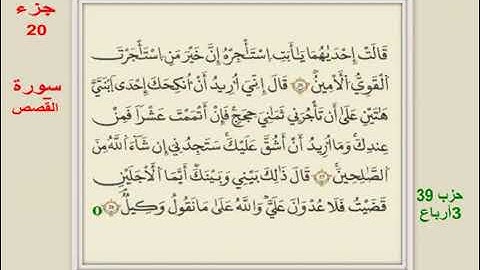 جزء
20
سورة
القصص
قَالَتْ إِحْدَىٰهُمَا يَٰٓأَبَتِ اِسْتَـْٔجِرْهُ إِنَّ خَيْرَ مَنِ اِسْتَـْٔجَرْتَ
اَلْقَوِيُّ اَلْأَمِينُ ۞ قَالَ إِنِّيَ أُرِيدُ أَنْ أُنكِحَكَ إِحْدَى اَبْنَتَيَّ
هَٰتَيْنِ عَلَىٰٓ أَن تَأْجُرَنِي ثَمَٰنِيَ حِجَجٍ فَإِنْ أَتْمَمْتَ عَشْرًا فَمِنْ
عِندِكَ وَمَآ أُرِيدُ أَنْ أَشُقَّ عَلَيْكَ سَتَجِدُنِيَ إِن شَآءَ اَللَّهُ مِنَ
اَلصَّٰلِحِينَ ۞ قَالَ ذَٰلِكَ بَيْنِي وَبَيْنَكَ أَيَّمَا اَلْأَجَلَيْنِ
قَضَيْتُ فَلَا عُدْوَٰنَ عَلَيَّ وَاللَّهُ عَلَىٰ مَا نَقُولُ وَكِيلٌ
حزب 39
3أرباع